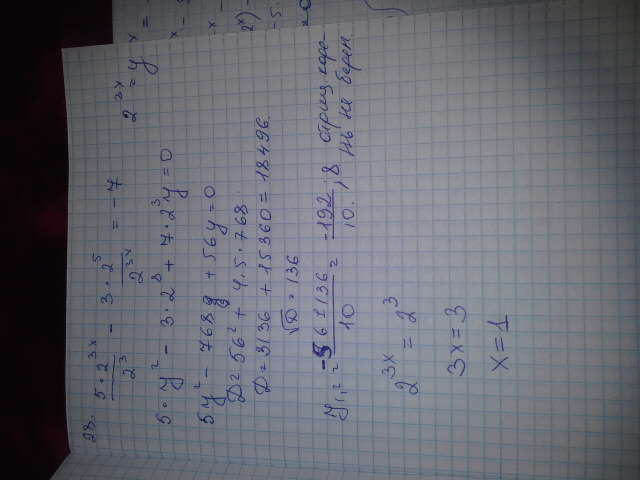 28.
5·2^{3x}/2^3 - 3·2^5/2^{3x} = -7
2^{3x} = y
5·y^2 - 3·2^8 + 7·2^3y = 0
5y^2 - 768 + 56y = 0
D = 56^2 + 4·5·768
D = 3136 + 15360 = 18496.
√D = 136
y_{1,2} = -56±136/10 = -192/10; 8 отриц коре-
нь не берем
2^{3x} = 2^3
3x = 3
x = 1